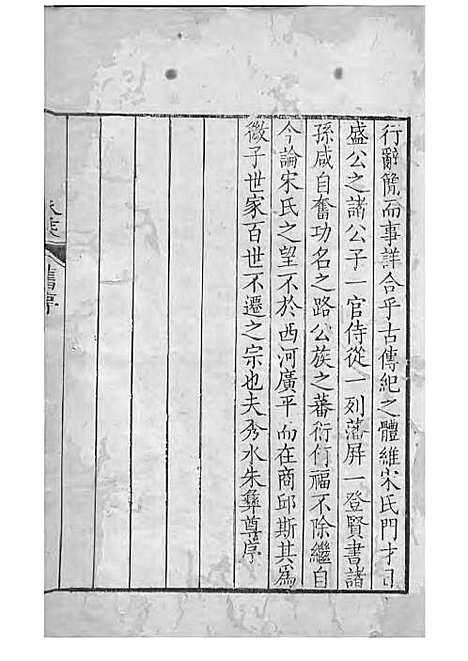 行辭簡而事詳合乎古傳紀之體維宋氏門才
盛公之諸公子一官侍從一列藩屏一登賢書諸
孫咸自奮功名之路公族之蕃衍何福不除繼自
今論宋氏之望不於西河廣平而在商邱斯其爲
微子世家百世不遷之宗也夫秀水朱彝尊序
舊序